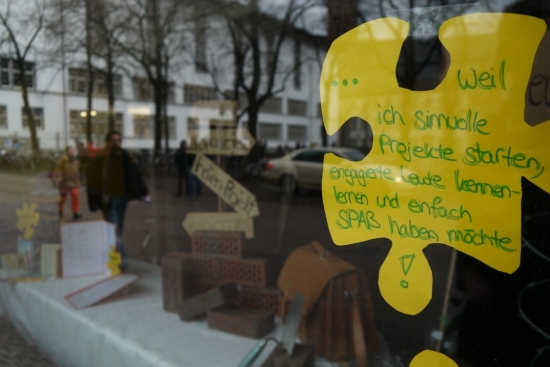 ... Weil
ich sinnvolle
Projekte starten,
engagierte Leute kennen-
lernen und einfach
SPAß haben möchte
!